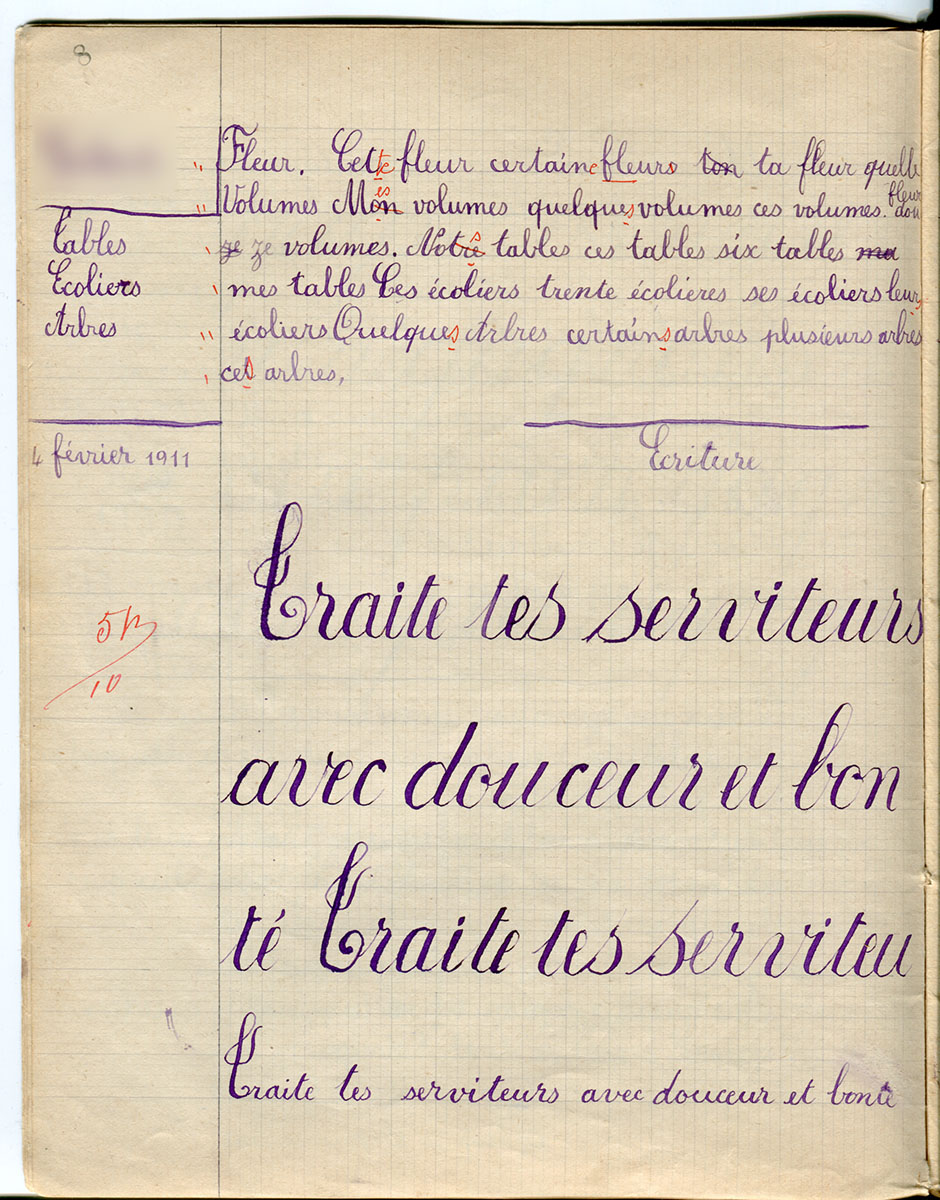 8
Fleur. Cette fleur certaine fleurs ton ta fleur quelle
fleur
Volumes Mes volumes quelques volumes ces volumes. dou
ze ze volumes. Nos tables ces tables six tables ma
Tables
mes tables Ces écoliers trente écolieres ses écoliers leurs
Ecoliers
écoliers Quelques Arbres certains arbres plusieurs arbres
Arbres
ces arbres,
4 février 1911
Ecriture
Traite tes serviteurs
5 1/2
10
avec douceur et bon
té Traite tes serviteu
Traite tes serviteurs avec douceur et bonté